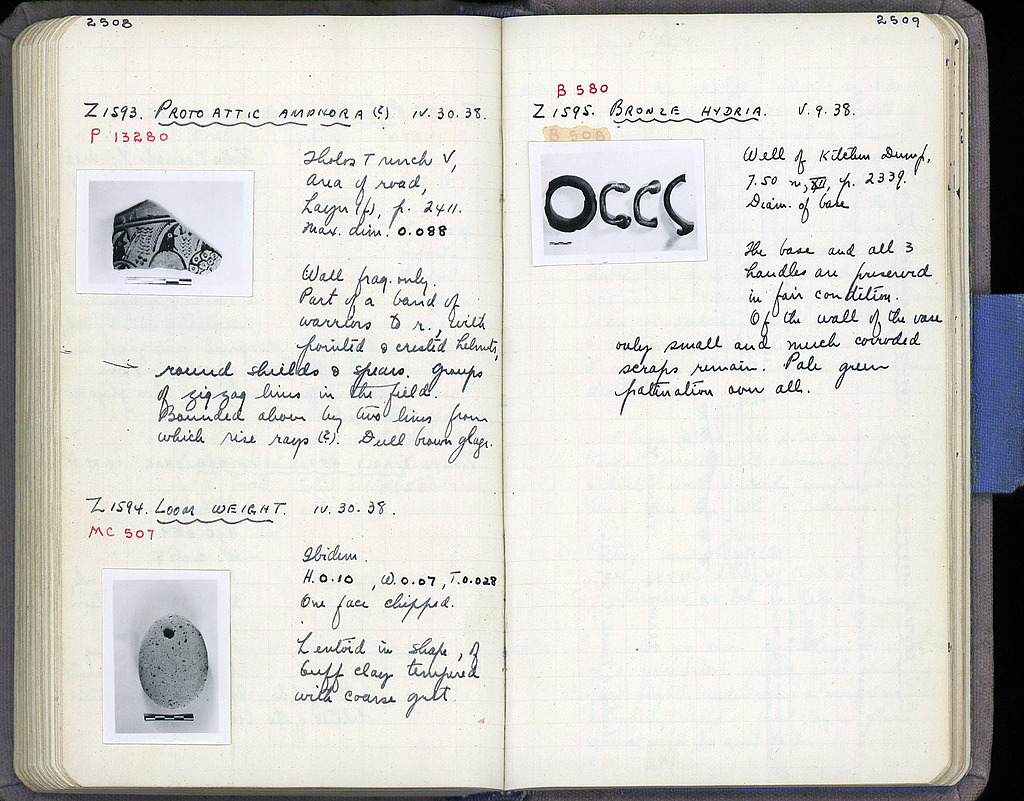 2508
Z1593. PROTOATTIC AMPHORA (?) IV.30.38.
P 13280
Tholos Trench V,
Area of road,
Layer (f), p. 2411.
Max. dim. 0.088
Wall frag. only.
Part of a band of
warriors to r., with
pointed & crested helmets,
round shields & spears. Groups
of zigzag lines in the field.
Bounded above by two lines from
which rise rays (?). Dull brown glaze.
Z1594. LOOM WEIGHT. IV.30.38.
MC 507
Ibidem.
H.0.10 , W.0.07, T.0.028
One face chipped.
Lentoid in shape, of
buff clay tempered
with coarse grit.
2509
B 580
Z1595. BRONZE HYDRIA. V.9.38.
B 508
Well of Kitchen Dump,
7.50 m, XII, p. 2339.
Diam. of base
The base and all 3
handles are preserved
in fair condition.
Of the wall of the vase
only small and much corroded
scraps remain. Pale green
patination over all.